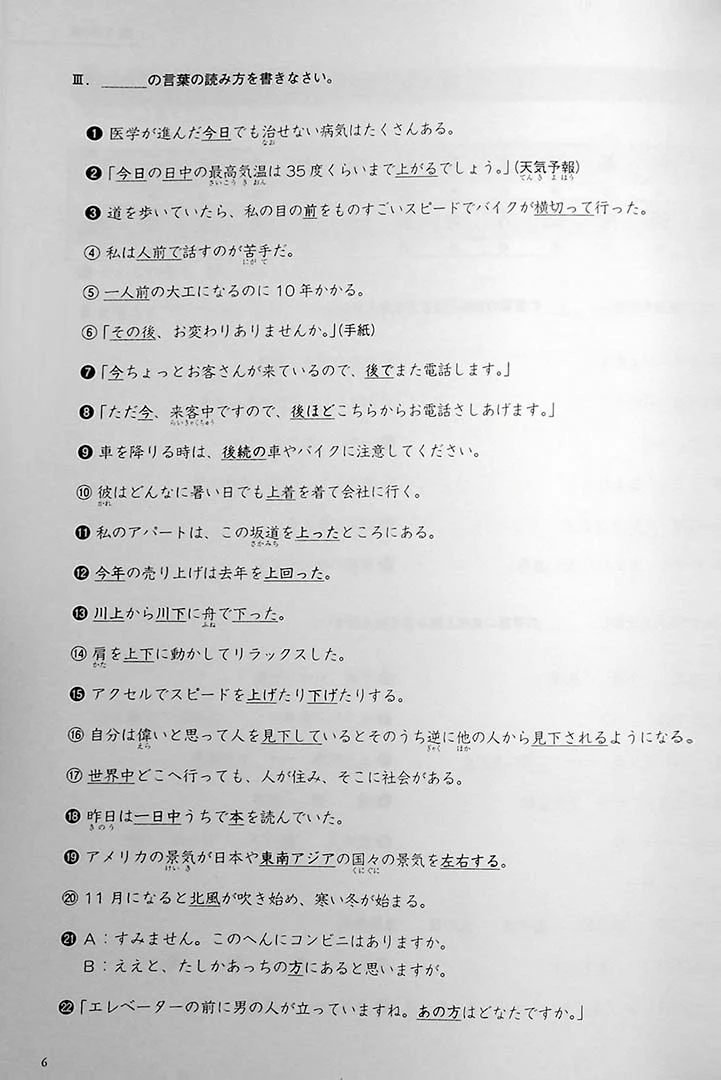 Ⅲ．＿＿＿の言葉の読み方を書きなさい。
❶ 医学が進んだ今日でも治せない病気はたくさんある。
なお
❷「今日の日中の最高気温は35度くらいまで上がるでしょう。」(天気予報)
さいこう き おん てん き よ ほう
❸ 道を歩いていたら、私の目の前をものすごいスピードでバイクが横切って行った。
④ 私は人前で話すのが苦手だ。
にが て
⑤ 一人前の大工になるのに10年かかる。
⑥「その後、お変わりありませんか。」(手紙)
❼「今ちょっとお客さんが来ているので、後でまた電話します。」
❽「ただ今、来客中ですので、後ほどこちらからお電話さしあげます。」
らいきゃくちゅう
❾ 車を降りる時は、後続の車やバイクに注意してください。
⑩ 彼はどんなに暑い日でも上着を着て会社に行く。
かれ
⓫ 私のアパートは、この坂道を上ったところにある。
さかみち
⓬ 今年の売り上げは去年を上回った。
⓭ 川上から川下に舟で下った。
ふね
⑭ 肩を上下に動かしてリラックスした。
かた
⓯ アクセルでスピードを上げたり下げたりする。
⑯ 自分は偉いと思って人を見下しているとそのうち逆に他の人から見下されるようになる。
えら ぎゃく ほか
⑰ 世界中どこへ行っても、人が住み、そこに社会がある。
⓲ 昨日は一日中うちで本を読んでいた。
きのう
⓳ アメリカの景気が日本や東南アジアの国々の景気を左右する。
けい き くにぐに
⑳ 11月になると北風が吹き始め、寒い冬が始まる。
㉑ A：すみません。このへんにコンビニはありますか。
B：ええと、たしかあっちの方にあると思いますが。
㉒「エレベーターの前に男の人が立っていますね。あの方はどなたですか。」
6